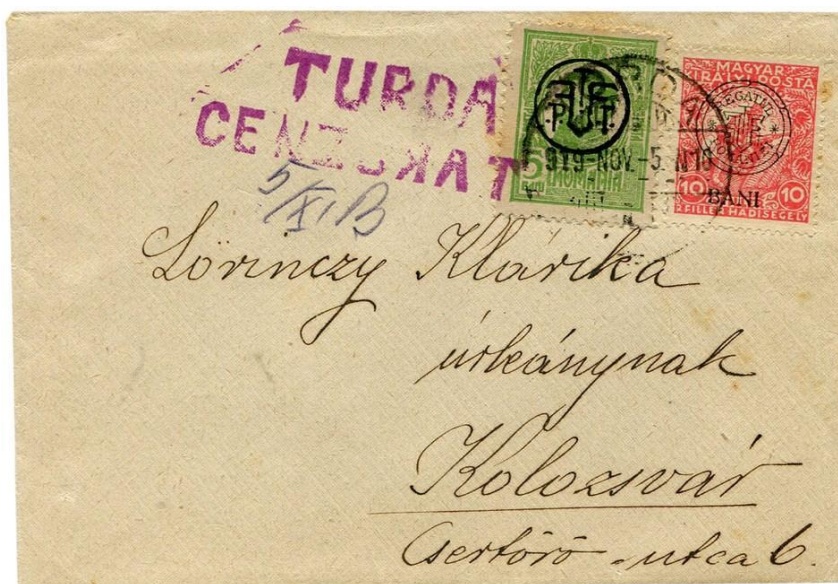 TURDA
CENZURAT
5/XI B
P.T.T.
5 BANI
ROMANIA
919-NOV.-5.
MAGYAR
KIRÁLYI POSTA
REGATUL
BANI
10 10
2 FILLER HADI SEGÉLY
Lörinczy Klárika
úrleánynak
Kolozsvár
Csertörő-utca 6.